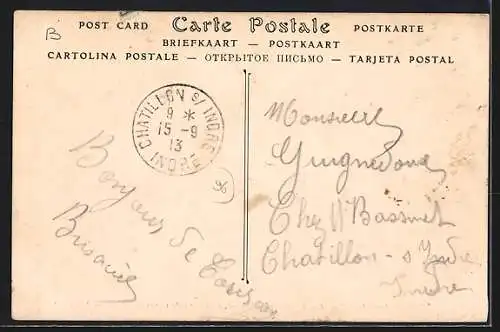 B
POST CARD Carte Postale POSTKARTE
BRIEFKAART — POSTKAART
CARTOLINA POSTALE — ОТКРЫТОЕ ПИСЬМО — TARJETA POSTAL
CHATILLON S/ INDRE
9 *
15 - 9
13
INDRE
Bonjour de
Monsieur
Chez
Chatillon - s Indre
Indre